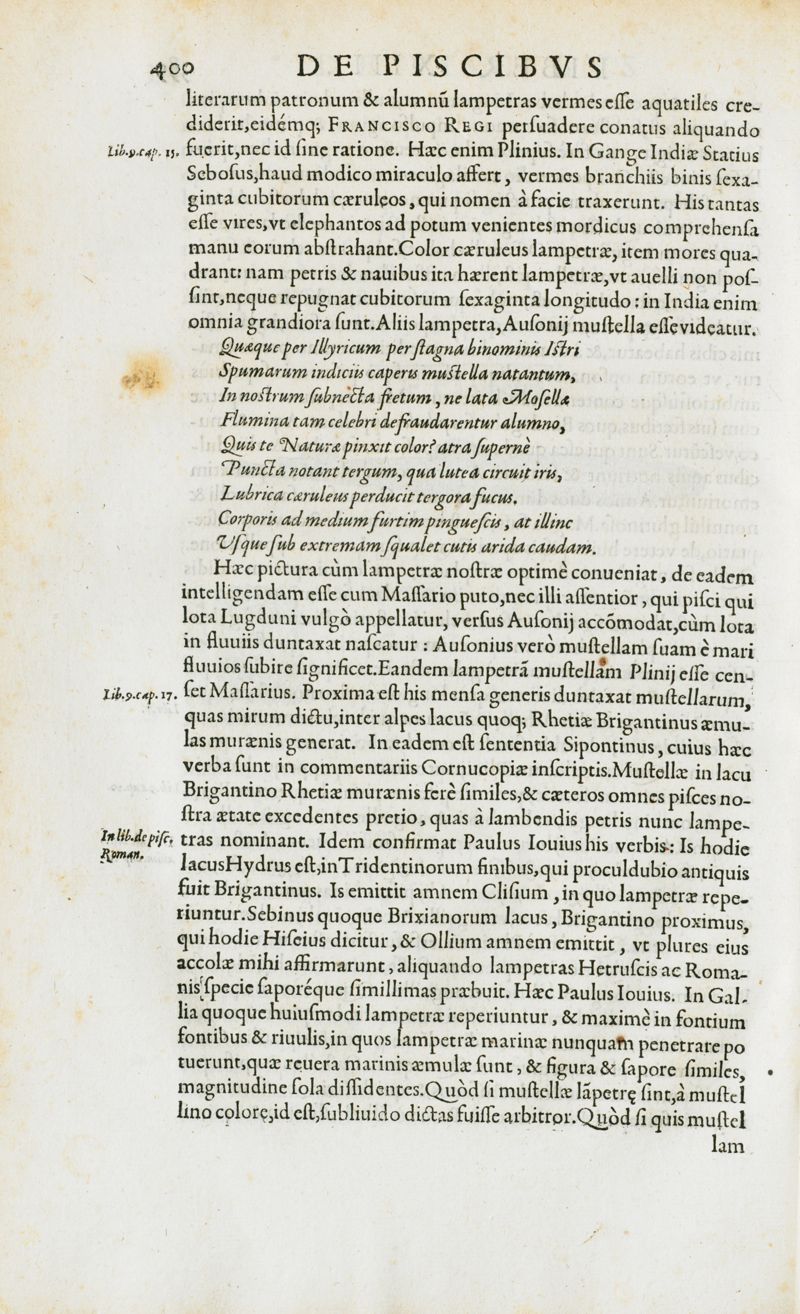 400 DE PISCIBVS
literarum patronum & alumnũ lampetras vermes esse aquatiles cre-
diderit,eidémq; FRANCISCO REGI persuadere conatus aliquando
Lib.9.cap. 15. fuerit,nec id sine ratione. Hæc enim Plinius. In Gange Indiæ Statius
Sebosus,haud modico miraculo affert, vermes branchiis binis sexa-
ginta cubitorum cæruleos, qui nomen à facie traxerunt. His tantas
esse vires,vt elephantos ad potum venientes mordicus comprehensa
manu eorum abstrahant.Color cæruleus lampetræ, item mores qua-
drant: nam petris & nauibus ita hærent lampetræ,vt auelli non pos-
sint,neque repugnat cubitorum sexaginta longitudo : in India enim
omnia grandiora sunt.Aliis lampetra, Ausonij mustella esse videatur.
Quæque per Illyricum per stagna binominis Istri
Spumarum indiciis caperis mustella natantum,
In nostrum subnecta fretum, ne lata Mosellæ
Flumina tam celebri defraudarentur alumno,
Quis te Naturæ pinxit color? atra supernè
Puncta notant tergum, qua lutea circuit iris,
Lubrica cæruleus perducit tergora fucus,
Corporis ad medium furtim pinguescis, at illinc
Vsque sub extremam squalet cutis arida caudam.
Hæc pictura cùm lampetræ nostræ optimè conueniat, de eadem
intelligendam esse cum Massario puto,nec illi assentior, qui pisci qui
lota Lugduni vulgò appellatur, versus Ausonij accõmodat,cùm lota
in fluuiis duntaxat nascatur : Ausonius verò mustellam suam è mari
fluuios subire significet.Eandem lampetrã mustellam Plinij esse cen-
Lib.9.cap.17. set Massarius. Proxima est his mensa generis duntaxat mustellarum,
quas mirum dictu,inter alpes lacus quoq; Rhetiæ Brigantinus æmu-
las murænis generat. In eadem est sententia Sipontinus, cuius hæc
verba sunt in commentariis Cornucopiæ inscriptis.Mustellæ in lacu
Brigantino Rhetiæ murænis ferè similes,& cæteros omnes pisces no-
stra ætate excedentes pretio, quas à lambendis petris nunc lampe-
In lib.de pisc. Roman. tras nominant. Idem confirmat Paulus Iouius his verbis: Is hodie
lacusHydrus est,inTridentinorum finibus,qui proculdubio antiquis
fuit Brigantinus. Is emittit amnem Clisium, in quo lampetræ repe-
riuntur.Sebinus quoque Brixianorum lacus, Brigantino proximus,
qui hodie Hiseius dicitur, & Ollium amnem emittit, vt plures eius
accolæ mihi affirmarunt, aliquando lampetras Hetruscis ac Roma-
nis specie saporéque simillimas præbuit. Hæc Paulus Iouius. In Gal-
lia quoque huiusmodi lampetræ reperiuntur, & maximè in fontium
fontibus & riuulis,in quos lampetræ marinæ nunquam penetrare po
tuerunt,quæ reuera marinis æmulæ sunt, & figura & sapore similes,
magnitudine sola diffidentes.Quòd si mustellæ lãpetrę sint,à mustel
lino colore,id est,subliuido dictas fuisse arbitror.Quòd si quis mustel
lam